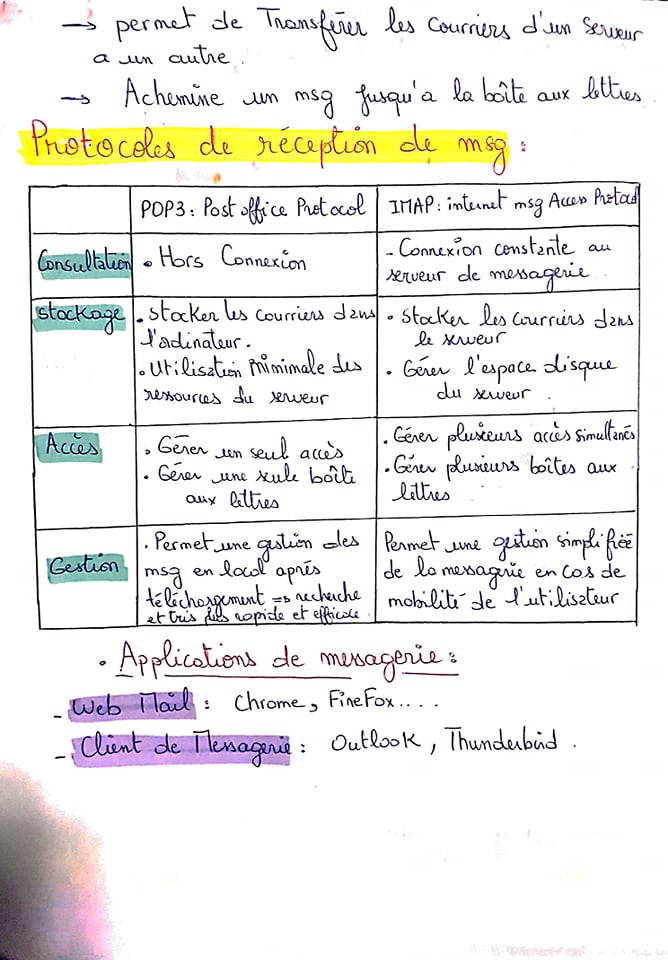 → permet de Transférer les Courriers d'un Serveur
a un autre.
→ Achemine un msg jusqu'a la boîte aux lettres
Protocoles de réception de msg :
POP3 : Post office Protocol
IMAP : internet msg Access Protocol
Consultation
• Hors Connexion
- Connexion constante au
serveur de messagerie.
Stockage
• Stocker les courriers dans
l'ordinateur.
• Utilisation minimale des
ressources du serveur
• Stocker les courriers dans
le serveur
• Gérer l'espace disque
du serveur.
Accès
• Gérer un seul accès
• Gérer une seule boîte
aux lettres
• Gérer plusieurs accès simultanés
• Gérer plusieurs boîtes aux
lettres
Gestion
• Permet une gestion des
msg en local après
téléchargement => recherche
et tris plus rapide et efficace.
Permet une gestion simplifiée
de la messagerie en cas de
mobilité de l'utilisateur
• Applications de messagerie :
- Web Mail : Chrome, FireFox....
- Client de Messagerie : Outlook, Thunderbird.